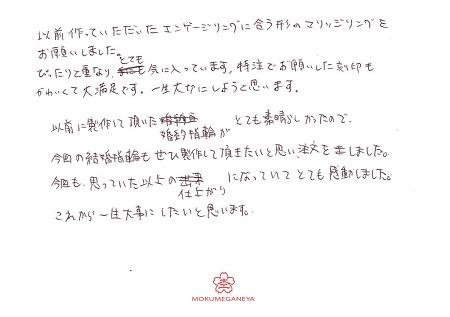 以前作っていただいたエンゲージリングに合う形のマリッジリングを
お願いしました。
ぴったりと重なり、とても気に入っています。特注でお願いした刻印も
かわいくて大満足です。一生大切にしようと思います。
以前に製作して頂いた婚約指輪がとても素晴らしかったので、
今回の結婚指輪もぜひ製作して頂きたいと思い、注文をしました。
今回も、思っていた以上の仕上がりになっていてとても感動しました。
これから一生大事にしたいと思います。
MOKUMEGANEYA